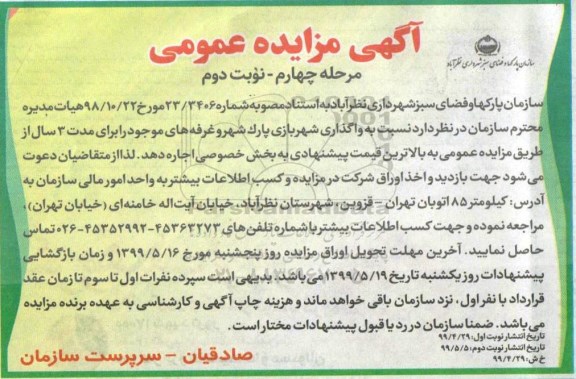 آگهی مزایده عمومی
مرحله چهارم - نوبت دوم
سازمان پارکها و فضای سبز شهرداری نظرآباد
سازمان پارکها و فضای سبز شهرداری نظرآباد به استناد مصوبه شماره ۲۳/۳۴۰۶ مورخ ۹۸/۱۰/۲۲ هیات مدیره
محترم سازمان در نظر دارد نسبت به واگذاری شهربازی پارک شهر و غرفه های موجود را برای مدت ۳ سال از
طریق مزایده عمومی به بالاترین قیمت پیشنهادی به بخش خصوصی اجاره دهد. لذا از متقاضیان دعوت
می شود جهت بازدید و اخذ اوراق شرکت در مزایده و کسب اطلاعات بیشتر به واحد امور مالی سازمان به
آدرس: کیلومتر ۸۵ اتوبان تهران - قزوین، شهرستان نظرآباد، خیابان آیت اله خامنه ای (خیابان تهران)،
مراجعه نموده و جهت کسب اطلاعات بیشتر با شماره تلفن های ۴۵۳۶۳۲۷۳-۴۵۳۵۲۹۹۲-۰۲۶ تماس
حاصل نمایید. آخرین مهلت تحویل اوراق مزایده روز پنجشنبه مورخ ۱۳۹۹/۵/۱۶ و زمان بازگشایی
پیشنهادات روز یکشنبه تاریخ ۱۳۹۹/۵/۱۹ می باشد. بدیهی است سپرده نفرات اول تا سوم تا زمان عقد
قرارداد با نفر اول، نزد سازمان باقی خواهد ماند و هزینه چاپ آگهی و کارشناسی به عهده برنده مزایده
می باشد. ضمنا سازمان در رد یا قبول پیشنهادات مختار است.
تاریخ انتشار نوبت اول: ۹۹/۴/۲۹
تاریخ انتشار نوبت دوم: ۹۹/۵/۵
خ ش: ۹۹/۴/۲۹
صادقیان - سرپرست سازمان